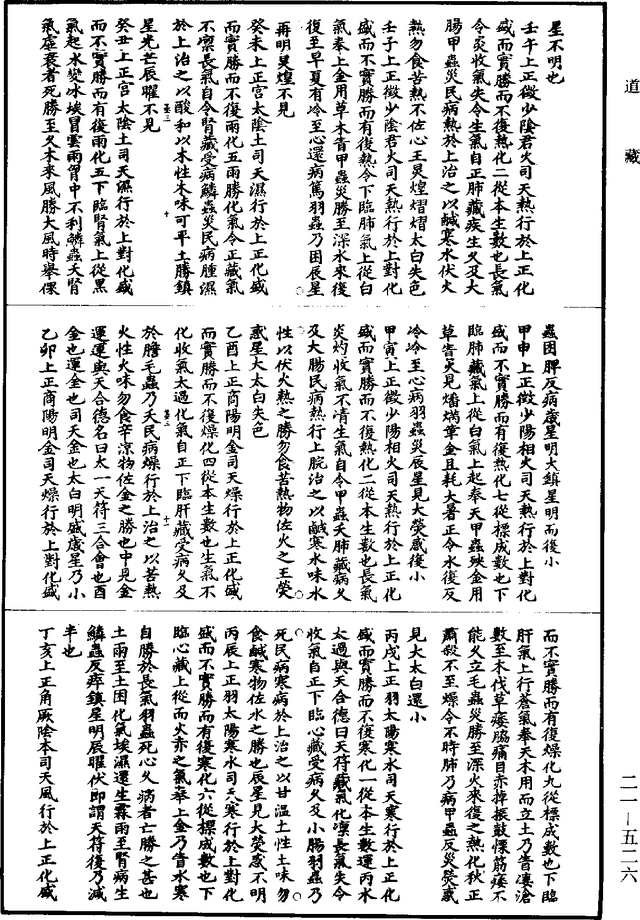 道藏
星不明也
壬午上正微少陰君火司天熱行於上正化
盛而實勝而不復熱化二從本生數也長氣
令炎收氣失令生氣自正肺藏疾生久及大
腸甲蟲災民病熱於上治之以鹹寒水伏火
熱勿食苦熱不佐心王炅煌熠熠太白失色
壬子上正微少陰君火司天熱行於上對化
盛而不實勝而有後熱令下臨肺氣上從白
氣奉上金用草木眚甲蟲災勝至深水來復
復至早夏有冷至心還病篤羽蟲乃困辰星
再明炅煌不見
癸未上正宫太陰土司天濕行於上正化盛
而實勝而不復雨化五雨勝化氣令正藏氣
不凛長氣自令腎藏受病鱗蟲災民病腫濕
於上治之以酸和以木性木味可平土勝鎮
星光芒辰曜不見
癸丑上正宫太陰土司天濕行於上對化盛
而不實勝而有復雨化五下臨腎氣上從黑
氣起水變冰埃冒雲雨胷中不利鱗蟲夭腎
氣虛衰者死勝至久木來風勝大風時舉倮
蟲困脾反病歲星明大鎮星明而後小
甲申上正微少陽相火司天熱行於上對化
盛而不實勝而有復熱化七從標成數也下
臨肺藏氣上從白氣上起奉天甲蟲殃金用
草眚火見燔焫革金且耗大暑正令水復反
冷冷至心病羽蟲災辰星見大熒惑後小
甲寅上正微少陽相火司天熱行於上正化
盛而實勝而不復熱化二從本生數也長氣
炎灼收氣不清生氣自令甲蟲夭肺藏病久
及大腸民病熱行上脘治之以鹹寒水味水
性以伏火熱之勝勿食苦熱物佐火之王熒
惑星大太白失色
乙酉上正商陽明金司天燥行於上正化盛
而實勝而不復燥化四從本生數也生氣不
化收氣太過化氣自正下臨肝藏受病久及
於膽毛蟲乃夭民病燥行於上治之以苦熱
火性火味勿食辛涼物佐金之勝也中見金
運運與天合德名曰太一天符三合會也酉
金也運金也司天金也太白明盛歲星乃小
乙卯上正商陽明金司天燥行於上對化盛
而不實勝而有復燥化九從標成數也下臨
肝氣上行蒼氣奉天木用而立土乃眚淒滄
數至木伐草痿脇痛目赤掉振鼓慄筋痿不
能久立毛蟲災勝至深火來復之熱化秋正
肅殺不至燥令不時肺乃病甲蟲反災熒惑
見大太白還小
丙戌上正羽太陽寒水司天寒行於上正化
盛而實勝而不復寒化一從本生數運丙水
太過與天合德曰天符藏氣化凛長氣失令
收氣自正下臨心藏受病久及小腸羽蟲乃
死民病寒病於上治之以甘溫土性土味勿
食鹹寒物佐水之勝也辰星見大熒惑不明
丙辰上正羽太陽寒水司天寒行於上對化
盛而不實勝而有復寒化六從標成數也下
臨心藏上從而火赤之氣奉上金乃眚水寒
自勝於長氣羽蟲死心久病者亡勝之甚也
土雨至土困化氣埃濕還生霧雨至腎病生
鱗蟲反瘁鎮星明辰曜伏即謂天符復乃減
半也
丁亥上正角厥陰本司天風行於上正化盛
二一—五二六